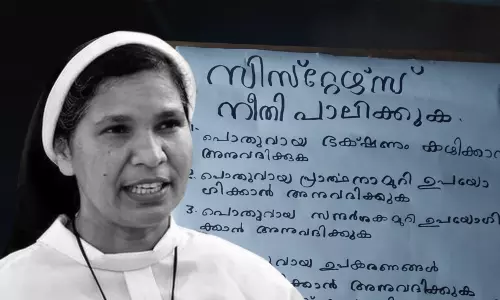 സിസ്റ്റേഴ്സ്
നീതി പാലിക്കുക.
1. പൊതുവായ ഭക്ഷണം കഴിക്കാൻ
അനുവദിക്കുക
2. പൊതുവായ പ്രാത്ഥനാമുറി ഉപയോ
ഗിക്കാൻ അനുവദിക്കുക
3. പൊതുവായ സന്ദർശകമുറി ഉപയോഗി
ക്കാൻ അനുവദിക്കുക
ഉപകരണങ്ങൾ
അനുവദിക്കുക